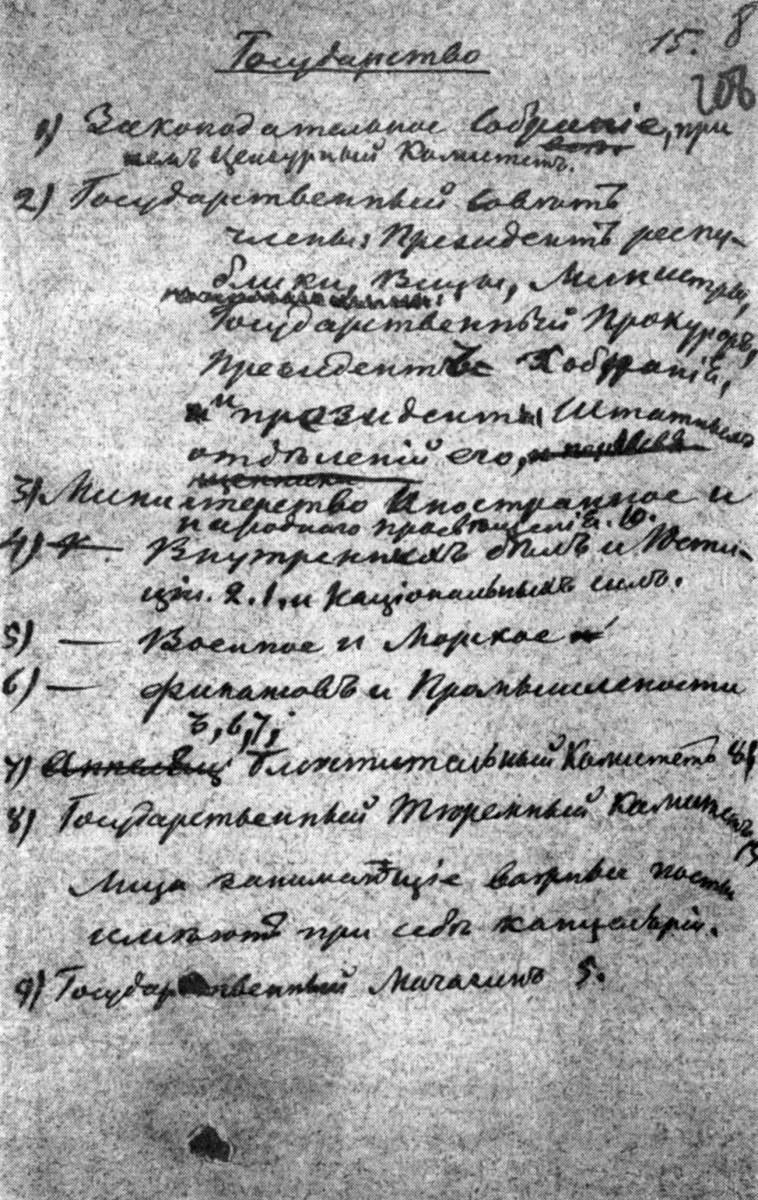 15. 8
Государство
1) Законодательное Собраніе, при
немъ Цензурный Комитетъ.
2) Государственный Совѣтъ
члены: Президентъ респу-
блики, Вице, Министры,
Государственный Прокуроръ,
Президентъ Собранія,
и президенты Штатныхъ
отдѣленій его,
3) Министерство Иностранное и
народнаго просвѣщенія. 10.
4) — Внутреннихъ дѣлъ и Юсти-
ціи. 2. 1. и національныхъ силъ.
5) — Военное и Морское
6) — Финансовъ и Промышлености
3, 6, 7,
7) Блюстительный Комитетъ
8) Государственный Тюремный Комитетъ
Лица занимающіе важные посты
имѣютъ при себѣ канцеляріи.
9) Государственный Магазинъ 5.